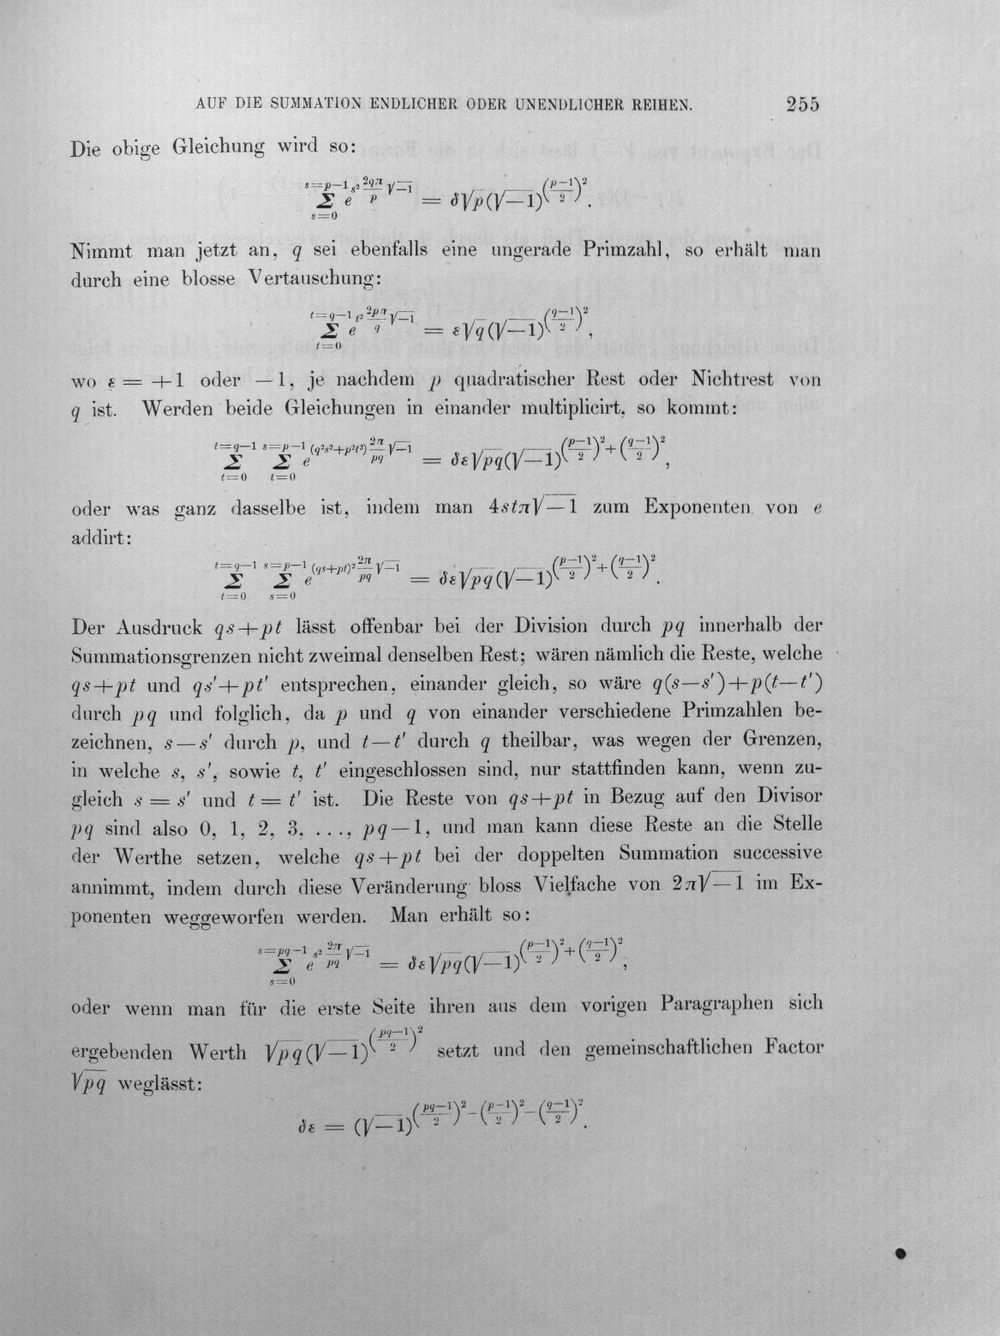 AUF DIE SUMMATION ENDLICHER ODER UNENDLICHER REIHEN. 255
Die obige Gleichung wird so:
$\sum_{s=0}^{s=p-1} e^{s^2 \frac{2q\pi}{p}\sqrt{-1}} = \delta\sqrt{p}(\sqrt{-1})^{\left(\frac{p-1}{2}\right)^2}.$
Nimmt man jetzt an, q sei ebenfalls eine ungerade Primzahl, so erhält man
durch eine blosse Vertauschung:
$\sum_{t=0}^{t=q-1} e^{t^2 \frac{2p\pi}{q}\sqrt{-1}} = \varepsilon\sqrt{q}(\sqrt{-1})^{\left(\frac{q-1}{2}\right)^2},$
wo ε = +1 oder —1, je nachdem p quadratischer Rest oder Nichtrest von
q ist. Werden beide Gleichungen in einander multiplicirt, so kommt:
$\sum_{t=0}^{t=q-1} \sum_{t=0}^{s=p-1} e^{(q^2s^2+p^2t^2)\frac{2\pi}{pq}\sqrt{-1}} = \delta\varepsilon\sqrt{pq}(\sqrt{-1})^{\left(\frac{p-1}{2}\right)^2+\left(\frac{q-1}{2}\right)^2},$
oder was ganz dasselbe ist, indem man 4stπ√—1 zum Exponenten von e
addirt:
$\sum_{t=0}^{t=q-1} \sum_{s=0}^{s=p-1} e^{(qs+pt)^2\frac{2\pi}{pq}\sqrt{-1}} = \delta\varepsilon\sqrt{pq}(\sqrt{-1})^{\left(\frac{p-1}{2}\right)^2+\left(\frac{q-1}{2}\right)^2}.$
Der Ausdruck qs+pt lässt offenbar bei der Division durch pq innerhalb der
Summationsgrenzen nicht zweimal denselben Rest; wären nämlich die Reste, welche
qs+pt und qs'+pt' entsprechen, einander gleich, so wäre q(s—s')+p(t—t')
durch pq und folglich, da p und q von einander verschiedene Primzahlen be-
zeichnen, s—s' durch p, und t—t' durch q theilbar, was wegen der Grenzen,
in welche s, s', sowie t, t' eingeschlossen sind, nur stattfinden kann, wenn zu-
gleich s = s' und t = t' ist. Die Reste von qs+pt in Bezug auf den Divisor
pq sind also 0, 1, 2, 3, ..., pq—1, und man kann diese Reste an die Stelle
der Werthe setzen, welche qs+pt bei der doppelten Summation successive
annimmt, indem durch diese Veränderung bloss Vielfache von 2π√—1 im Ex-
ponenten weggeworfen werden. Man erhält so:
$\sum_{s=0}^{s=pq-1} e^{s^2 \frac{2\pi}{pq}\sqrt{-1}} = \delta\varepsilon\sqrt{pq}(\sqrt{-1})^{\left(\frac{p-1}{2}\right)^2+\left(\frac{q-1}{2}\right)^2},$
oder wenn man für die erste Seite ihren aus dem vorigen Paragraphen sich
ergebenden Werth $\sqrt{pq}(\sqrt{-1})^{\left(\frac{pq-1}{2}\right)^2}$ setzt und den gemeinschaftlichen Factor
√pq weglässt:
$\delta\varepsilon = (\sqrt{-1})^{\left(\frac{pq-1}{2}\right)^2-\left(\frac{p-1}{2}\right)^2-\left(\frac{q-1}{2}\right)^2}.$